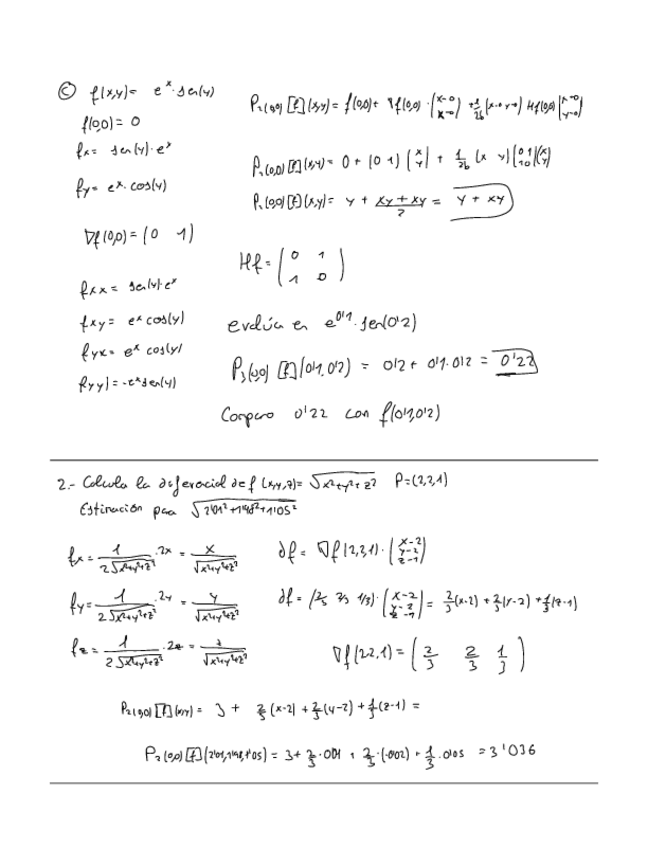 c) f(x,y) = e^x · sen(y)
f(0,0) = 0
fx = sen(y) · e^x
fy = e^x · cos(y)
∇f(0,0) = (0 1)
fxx = sen(y) · e^x
fxy = e^x cos(y)
fyx = e^x cos(y)
fyy) = -e^x sen(y)
P2(0,0) [f] (x,y) = f(0,0) + ∇f(0,0) · (x-0 x-0) + 1/2 (x-0 y-0) Hf(0,0) (x-0 y-0)
P2(0,0) [f] (x,y) = 0 + (0 1) (x y) + 1/2 (x y) (0 1 1 0) (x y)
P2(0,0) [f] (x,y) = y + (xy + xy)/2 = y + xy
Hf = (0 1 1 0)
evalúa en e^0'1 · sen(0'2)
P3(0,0) [f] (0'1, 0'2) = 0'2 + 0'1 · 0'2 = 0'22
Comparo 0'22 con f(0'1, 0'2)
2.- Calcula la diferencial de f (x,y,z) = √x²+y²+z² P = (2,2,1)
Estimación para √2'01²+1'98²+1'05²
fx = 1/(2√x²+y²+z²) · 2x = x/√x²+y²+z²
fy = 1/(2√x²+y²+z²) · 2y = y/√x²+y²+z²
fz = 1/(2√x²+y²+z²) · 2z = z/√x²+y²+z²
df = ∇f(2,2,1) · (x-2 y-2 z-1)
df = (2/3 2/3 1/3) · (x-2 y-2 z-1) = 2/3 (x-2) + 2/3 (y-2) + 1/3 (z-1)
∇f(2,2,1) = (2/3 2/3 1/3)
P2(0,0) [f] (x,y) = 3 + 2/3 (x-2) + 2/3 (y-2) + 1/3 (z-1) =
P2(0,0) [f] (2'01, 1'98, 1'05) = 3 + 2/3 · 0'01 + 2/3 · (-0'02) + 1/3 · 0'05 = 3'036